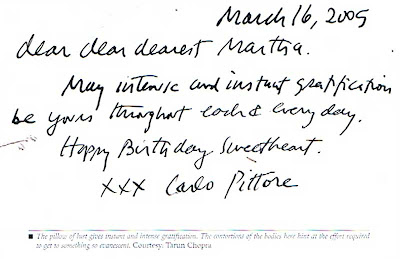 March 16, 2005
dear dear dearest Martha.
May intense and instant gratification
be yours throughout each & every day.
Happy Birthday Sweetheart.
XXX Carlo Pittore
■ The pillow of lust gives instant and intense gratification. The contortions of the bodies here hint at the effort required
to get to something so evanescent. Courtesy: Tarun Chopra